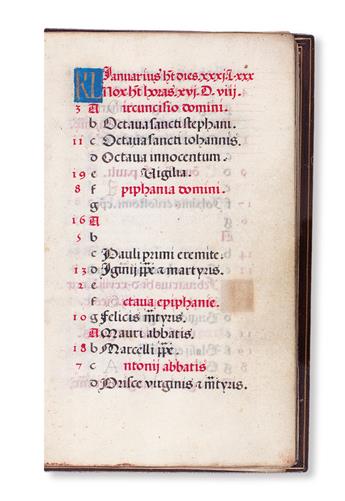 KL Ianuarius ht dies. xxxi. L. xxx
Nox ht horas. xvi. D. viij.
3 A ircuncisio domini.
b Octava sancti stephani.
11 c Octava sancti iohannis.
d Octava innocentum.
19 e Vigilia.
8 f piphania domini.
g
16 A
5 b
c Pauli primi eremite.
13 d Iginij ppe & martyris.
2 e
f ctava epiphanie.
10 g Felicis mtyris.
A Mauri abbatis.
18 b Marcelli ppe.
7 c ntonij abbatis
d Prisce virginis & mtyris.